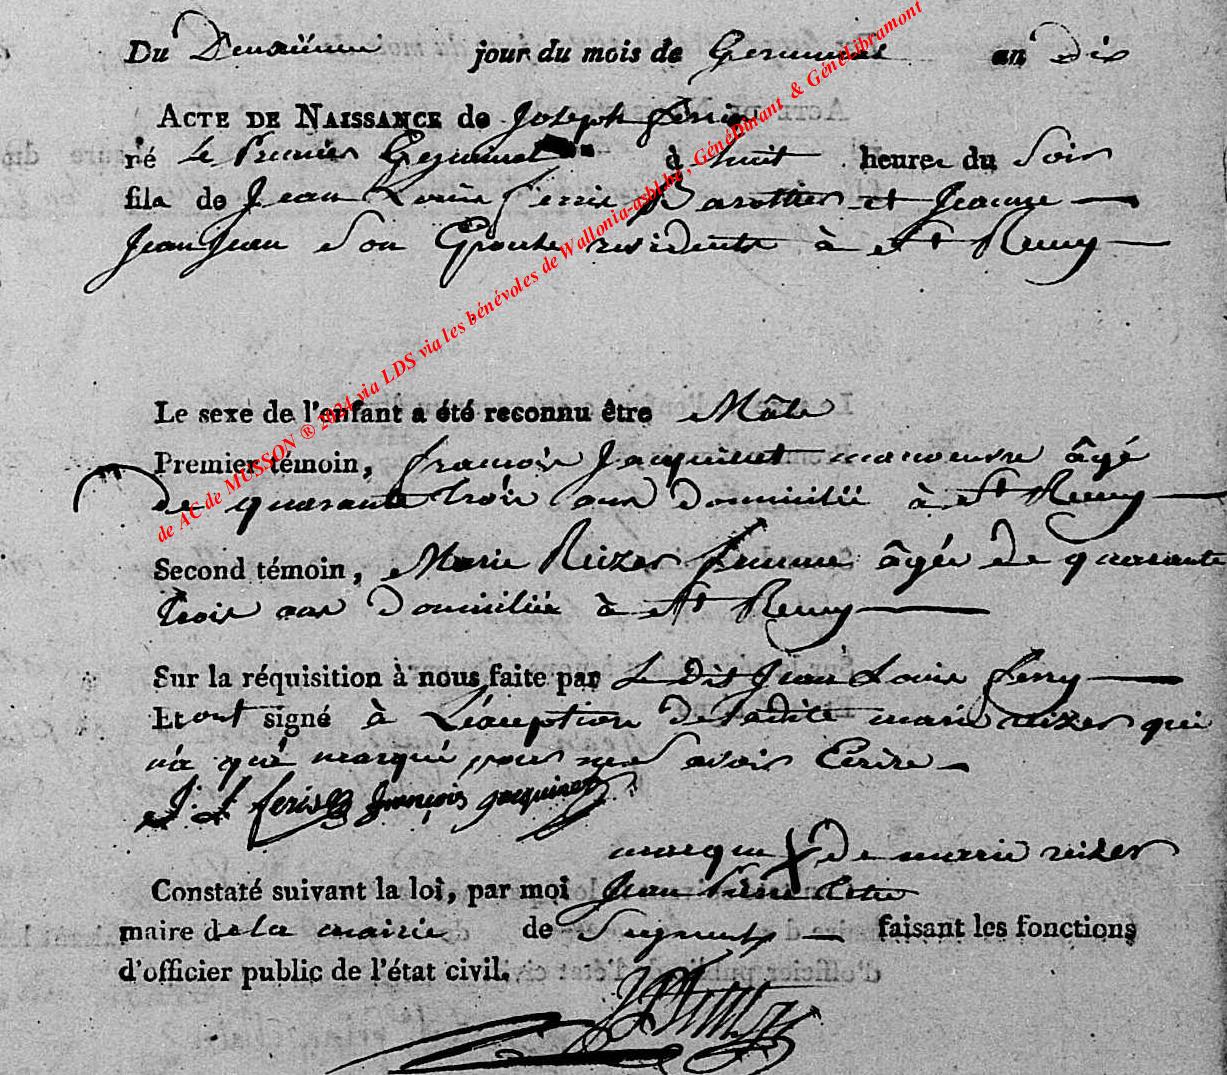 Du Deuxième jour du mois de Germinal an dix
ACTE DE NAISSANCE de Joseph ferry
né Le Premier Germinal à huit heure du Soir
fils de Jean Louis ferri et Jeanne
Jean Jean son Epouse residents à St Remy
Le sexe de l'enfant a été reconnu être Mâle
Premier témoin, francois Jacquinet manoeuvre âgé
de quarante trois ans domicilié à St Remy
Second témoin, Marie Reizer femme âgée de quarante
trois ans domiciliée à St Remy
Sur la réquisition à nous faite par Le dit Jean Louis ferry
Et ont signé à L'éxception de ladite marie reizer qui
n'a que marqué pour ne savoir Ecrire
J. L feris françois jacquinet
marque X de marie reizer
Constaté suivant la loi, par moi Jean
maire de la mairie de faisant les fonctions
d'officier public de l'état civil.
de AC de MUSSON ® 2024 via LDS via les bénévoles de Wallonia-asbl.be, GénéDinant & GénéLibramont